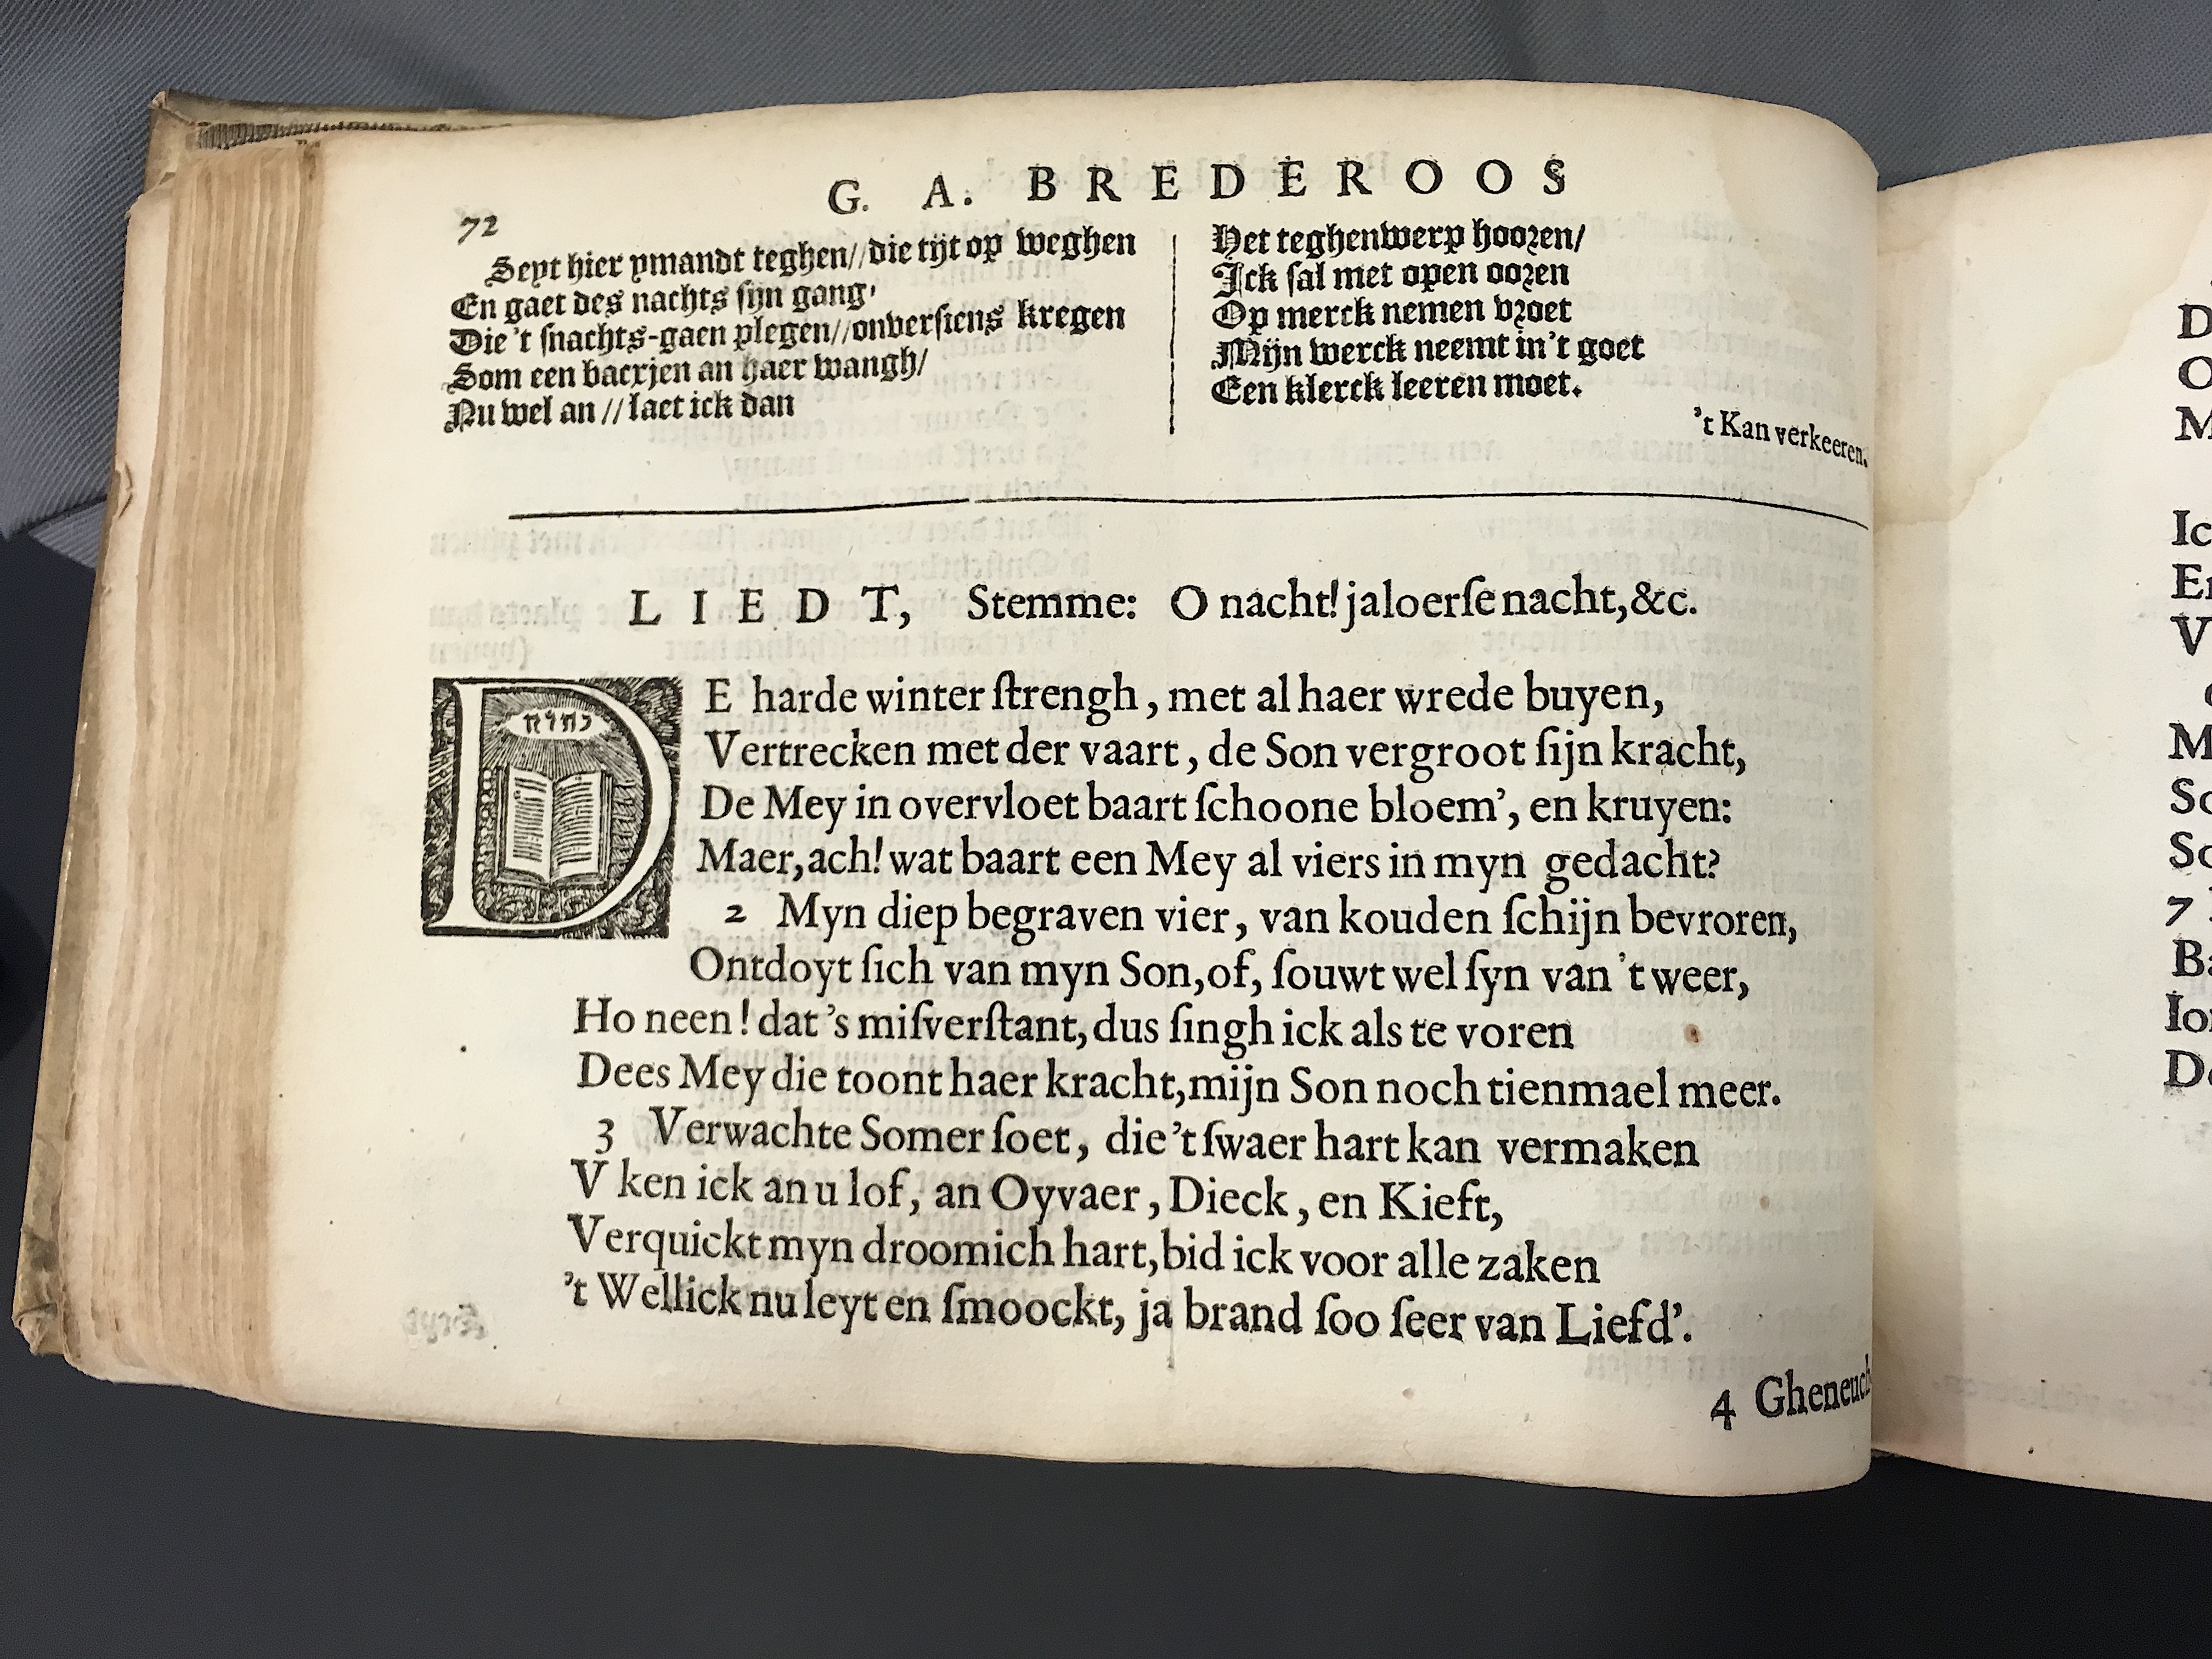 G. A. BREDEROOS
72
Seyt hier ymandt teghen//die tijt op weghen
En gaet des nachts sijn gang,
Die 't snachts-gaen plegen//onversiens kregen
Som een baexjen an haer wangh/
Nu wel an // laet ick dan
Het teghenwerp hooren/
Ick sal met open ooren
Op merck nemen vroet
Mijn werck neemt in 't goet
Een klerck leeren moet.
't Kan verkeeren.
LIEDT, Stemme: O nacht! jaloerſe nacht, &c.
DE harde winter ſtrengh, met al haer wrede buyen,
Vertrecken met der vaart, de Son vergroot ſijn kracht,
De Mey in overvloet baart ſchoone bloem', en kruyen:
Maer, ach! wat baart een Mey al viers in myn gedacht?
2 Myn diep begraven vier, van kouden ſchijn bevroren,
Ontdoyt ſich van myn Son, of, ſouwt wel ſyn van 't weer,
Ho neen! dat 's miſverſtant, dus ſingh ick als te voren
Dees Mey die toont haer kracht, mijn Son noch tienmael meer.
3 Verwachte Somer ſoet, die 't ſwaer hart kan vermaken
V ken ick an u lof, an Oyvaer, Dieck, en Kieft,
Verquickt myn droomich hart, bid ick voor alle zaken
't Wellick nu leyt en ſmoockt, ja brand ſoo ſeer van Liefd'.
4 Gheneuch